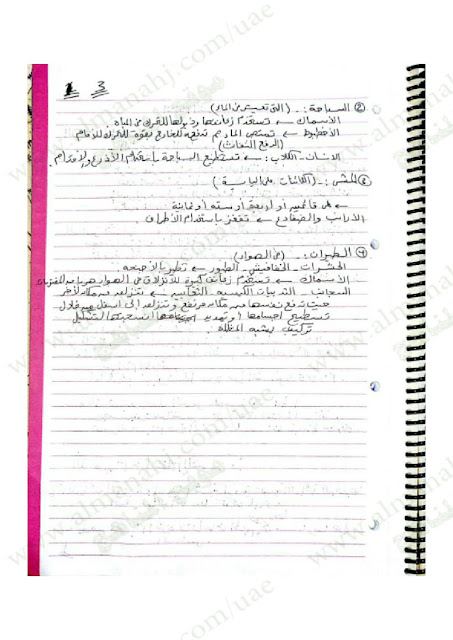 3
② السباحة :- (التي تعيش في الماء)
الأسماك ← تستخدم زعانفها وذيولها للتحرك في المياه
الأخطبوط ← تمتص الماء ثم تدفعه للخارج بقوة للأمام
(الدفع النفاث)
الانسان - الكلاب :- ← تستطيع السباحة باستخدام الأذرع والأقدام .
المشي :- (الكائنات على اليابسة)
← على قدمين أو أربعة أو ستة أو ثمانية
الأرانب والضفادع ← تقفز باستخدام الأطراف .
④ الطيران :- (في الهواء)
الحشرات - الخفافيش - الطيور ← تطير بالأجنحة
الأسماك ← تستخدم زعانف كبيرة للانزلاق في الهواء هربا من المفترسات
السناجب - الثدييات الكيسية ← تنزلق من مكان لآخر
حيث ترفع نفسها من مكان مرتفع وتنزلق إلى أسفل من خلال
تسطيح أجسامها أو تمديد أجسامها لتشكيل
تركيب يشبه المظلة .
www.almanahj.com/uae
موقع المناهج